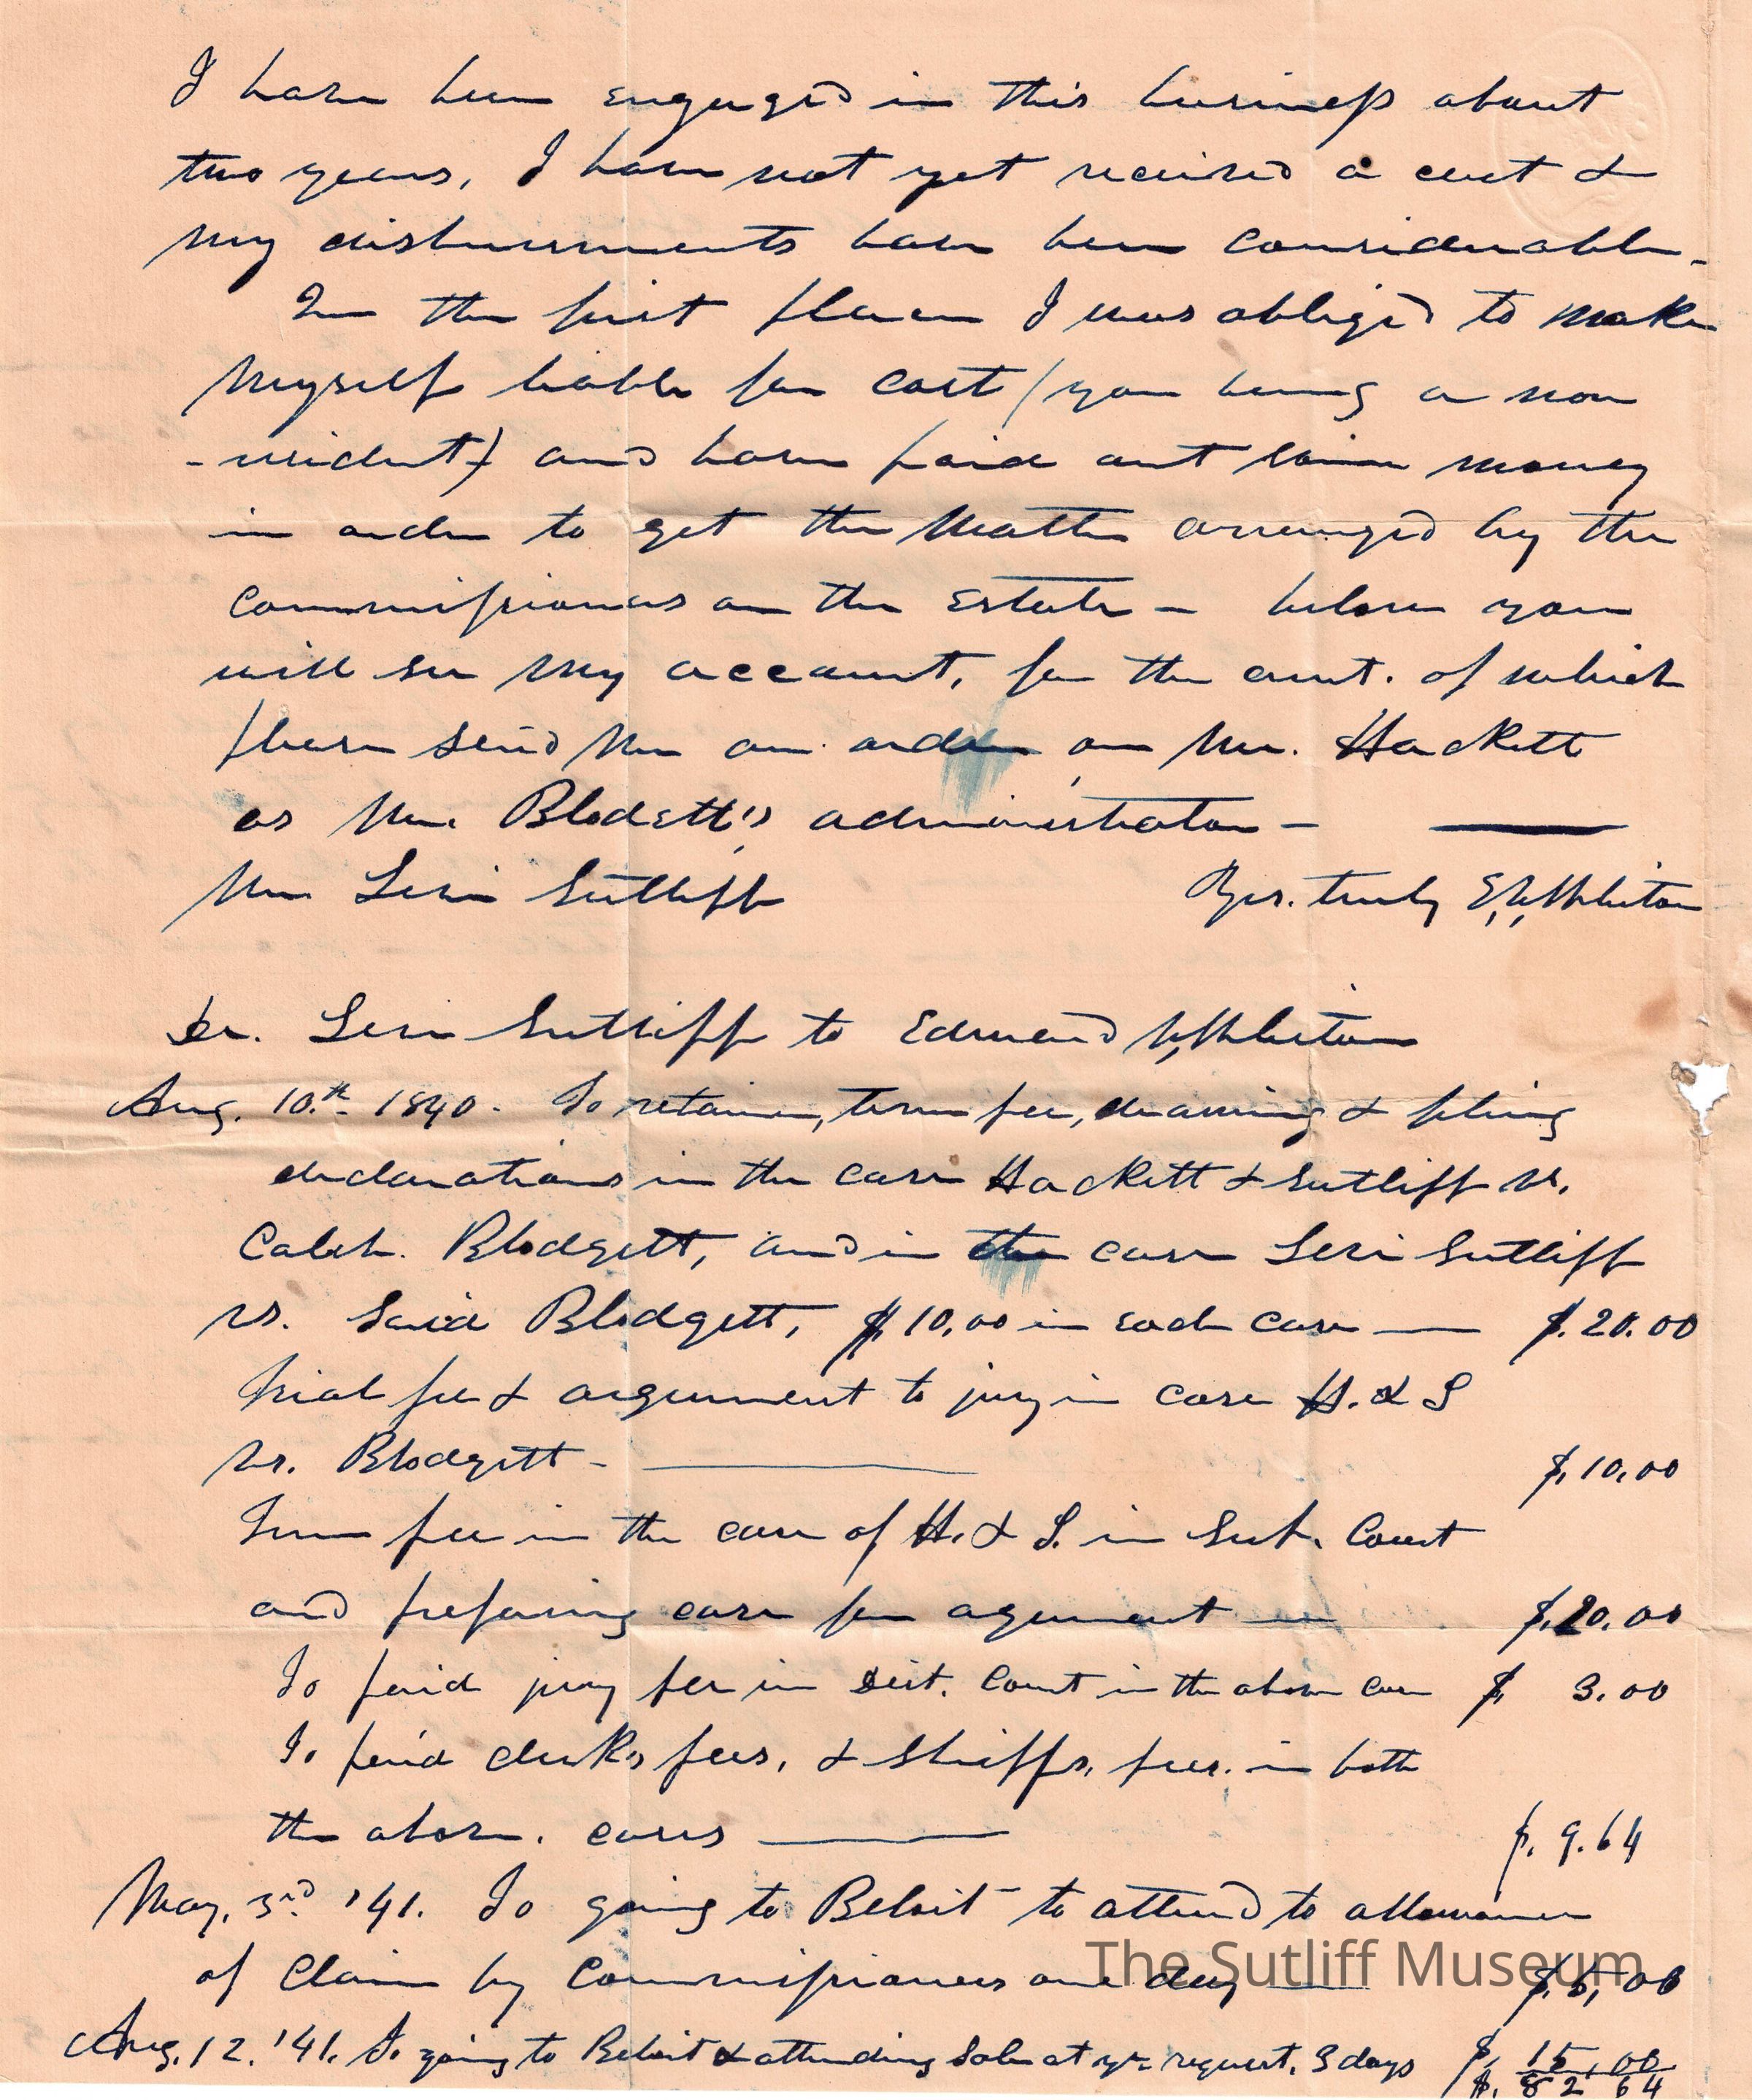 I have been engaged in this business about
two years, I have not yet received a cent &
my disbursments have been considerable.
In the first place I was obliged to make
myself liable for cost (you being a non
-resident) and have paid out some money
in order to get the matter arranged by the
commissioners on the Estate - below you
will see my account, for the amt. of which
please send me an order on Mr. Hackett
as Mr. Blodett's administrator -
Mr. Levi Sutliff Yrs. truly E. Whliton
Dr. Levi Sutliff to Edmund
Aug. 10.th 1840. To retainer, term fee, drawing & filing
declarations in the case Hackett & Sutliff vs.
Caleb. Blodgett, and in the case Levi Sutliff
vs. Said Blodgett, $10.00 in each case — $.20.00
Trial fee & argument to jury in case H. & S
vs. Blodgett - $.10.00
Term fee in the case of H. & S. in Sup. Court
and prefaring case for agument — $.20.00
To paid jury fee in Dist. Court in the above case $ 3.00
To paid clerks fees, & Shiffs, fees. in both
the above. cases — $. 9.64
May, 3rd '41. To going to Beloit to attend to allowance
of Claim by Commissioners one day — $.5,00
Aug. 12. '41. To going to Beloit & attending Sale at yr. request. 3 days $. 15,00
$. 82 64
The Sutliff Museum